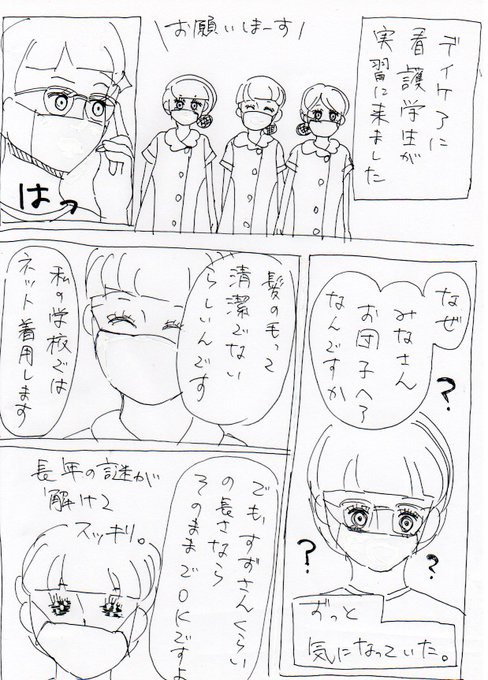 デイケアに
看護学生が
実習に来ました
お願いしまーす
はっ
なぜ
みなさん
お団子ヘア
なんですか
?
?
?
ずっと
気になっていた。
髪の毛って
清潔でない
らしいんです
私の学校では
ネット着用します
でも、すずさんくらい
の長さなら
そのままでOKですよ
長年の謎が
解けて
スッキリ。